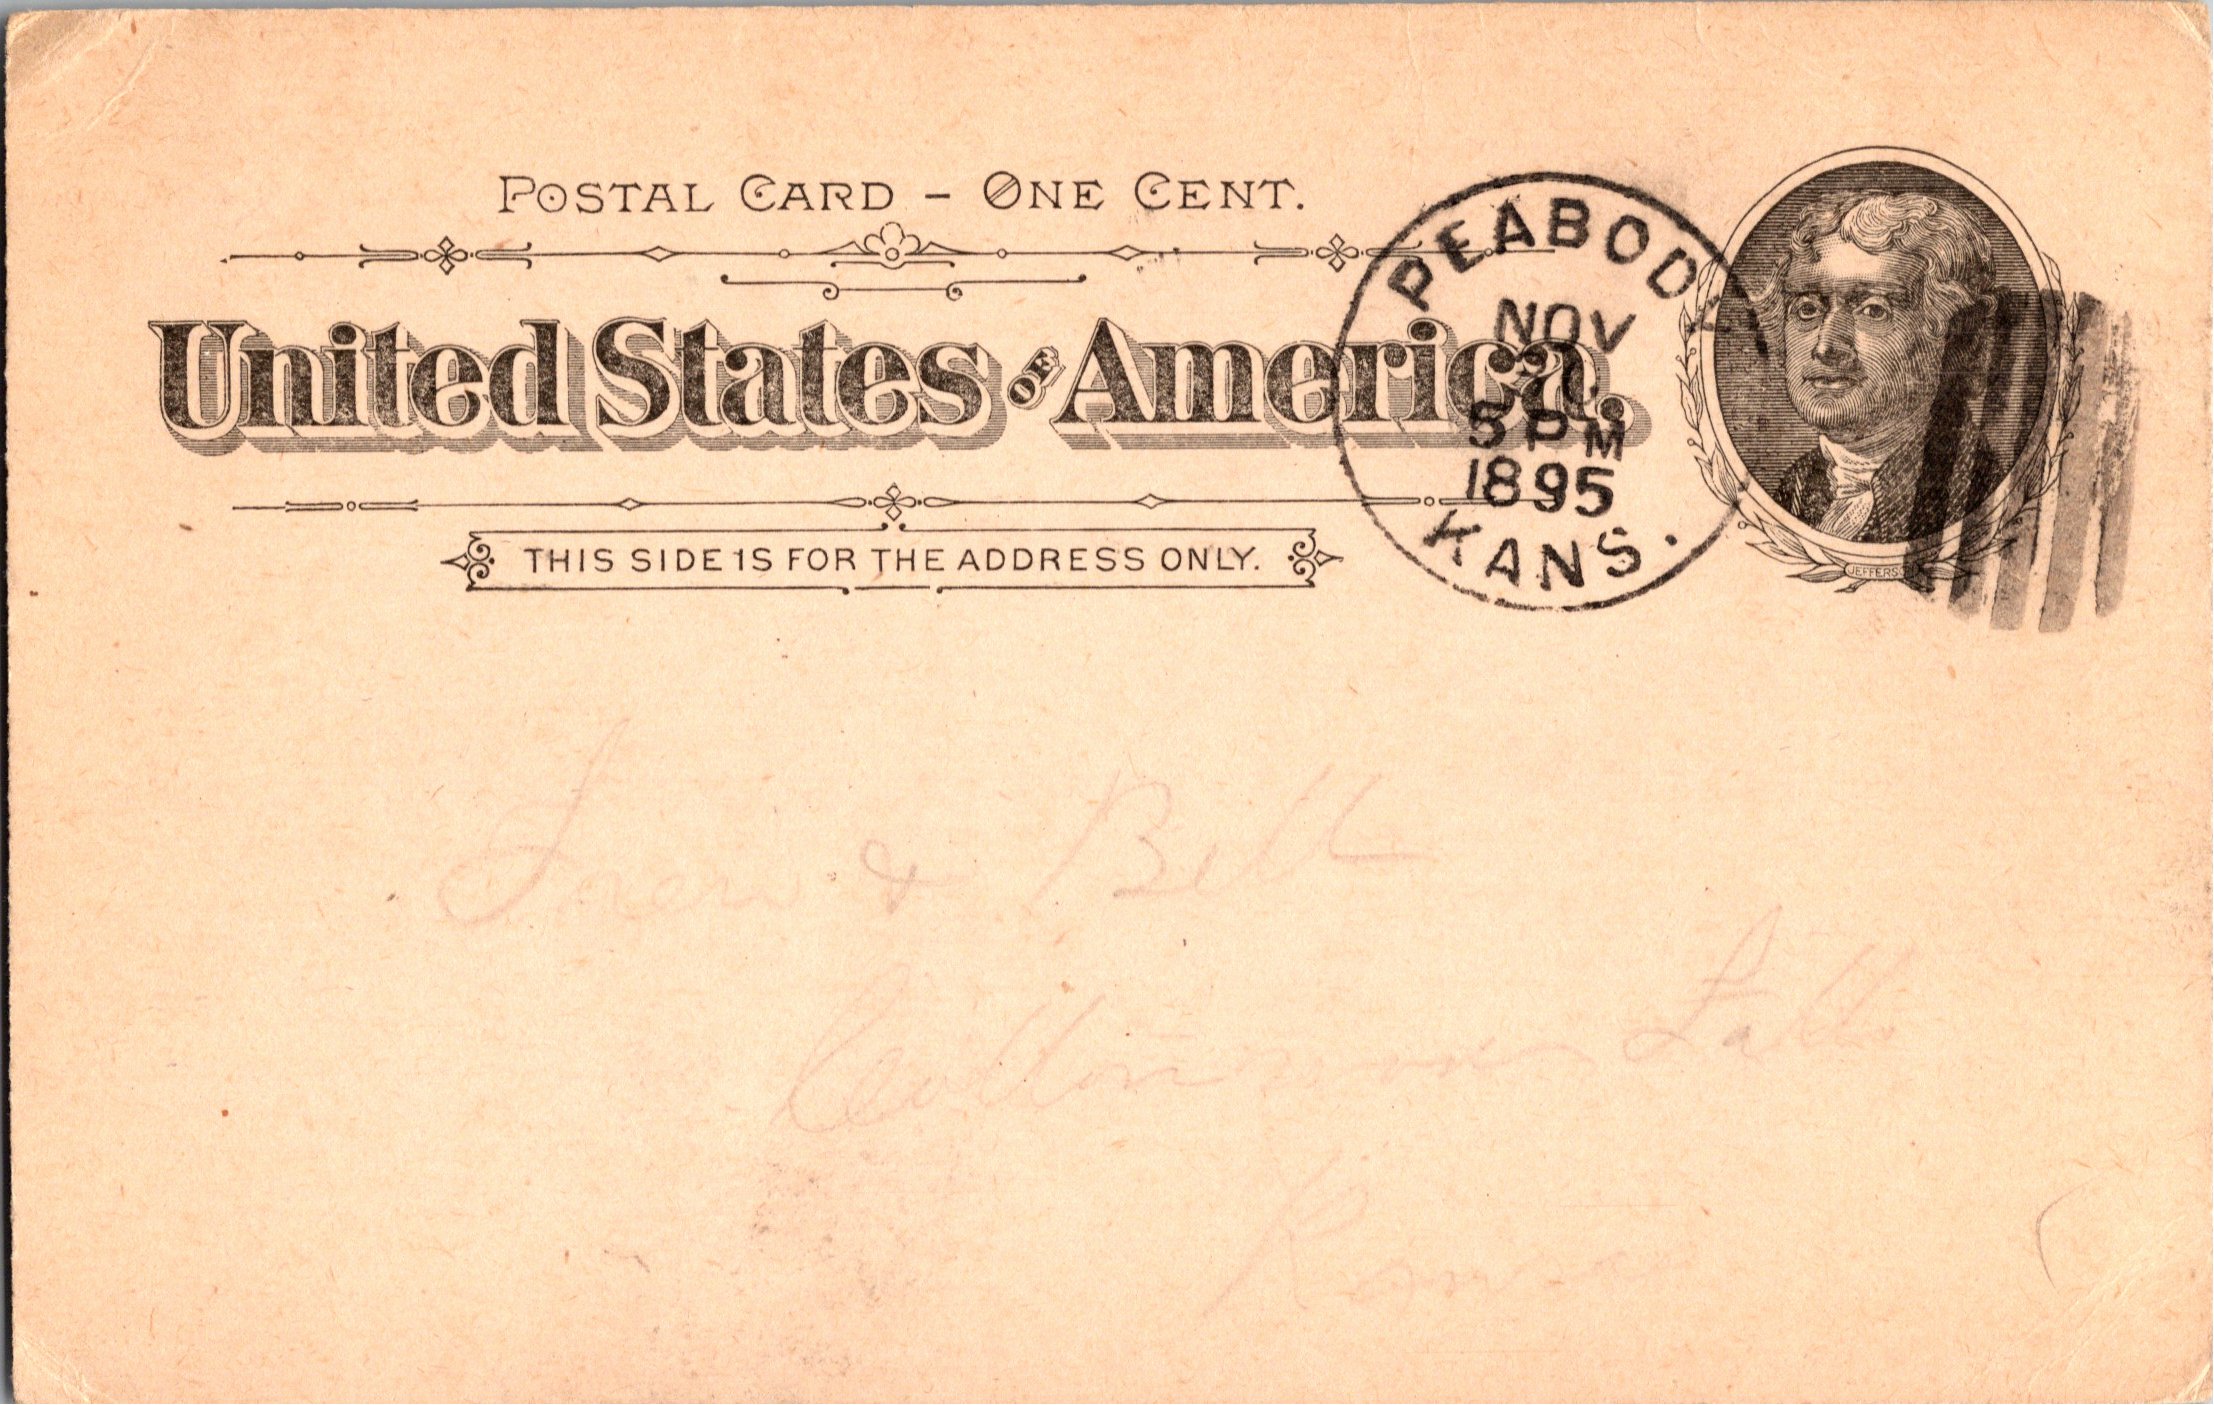 POSTAL CARD - ONE CENT.
United States OF America.
THIS SIDE IS FOR THE ADDRESS ONLY.
PEABODY
NOV
5 PM
1895
KANS.
JEFFERSON
& Bell
Cottonwood Falls
Kansas